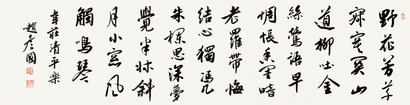 野花芳草
寂寞関山
道柳吐金
絲鶯語早
惆悵香閨暗
老羅帶悔
結心獨凭
朱欄思深夢
覺半牀斜
月小窗風
觸鳴琴
韋莊清平樂
趙彥國